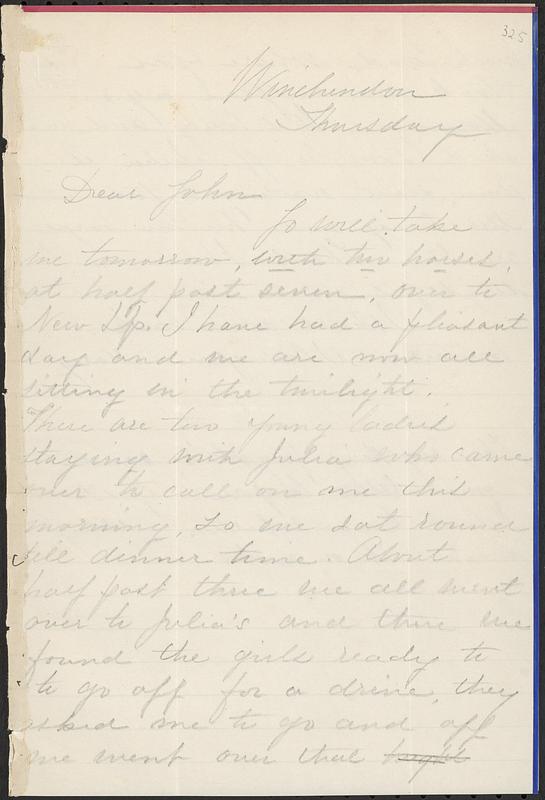 325
Winchendon
Thursday
Dear John
Jo will take
me tomorrow, with two horses,
at half past seven, over to
New Ip. I have had a pleasant
day and we are now all
sitting in the twilight.
There are two young ladies
staying with Julia who came
over to call on me this
morning, so we sat round
till dinner time. About
half past three we all went
over to Julia's and there we
found the girls ready to
to go off for a drive, they
asked me to go and off
we went over that bright